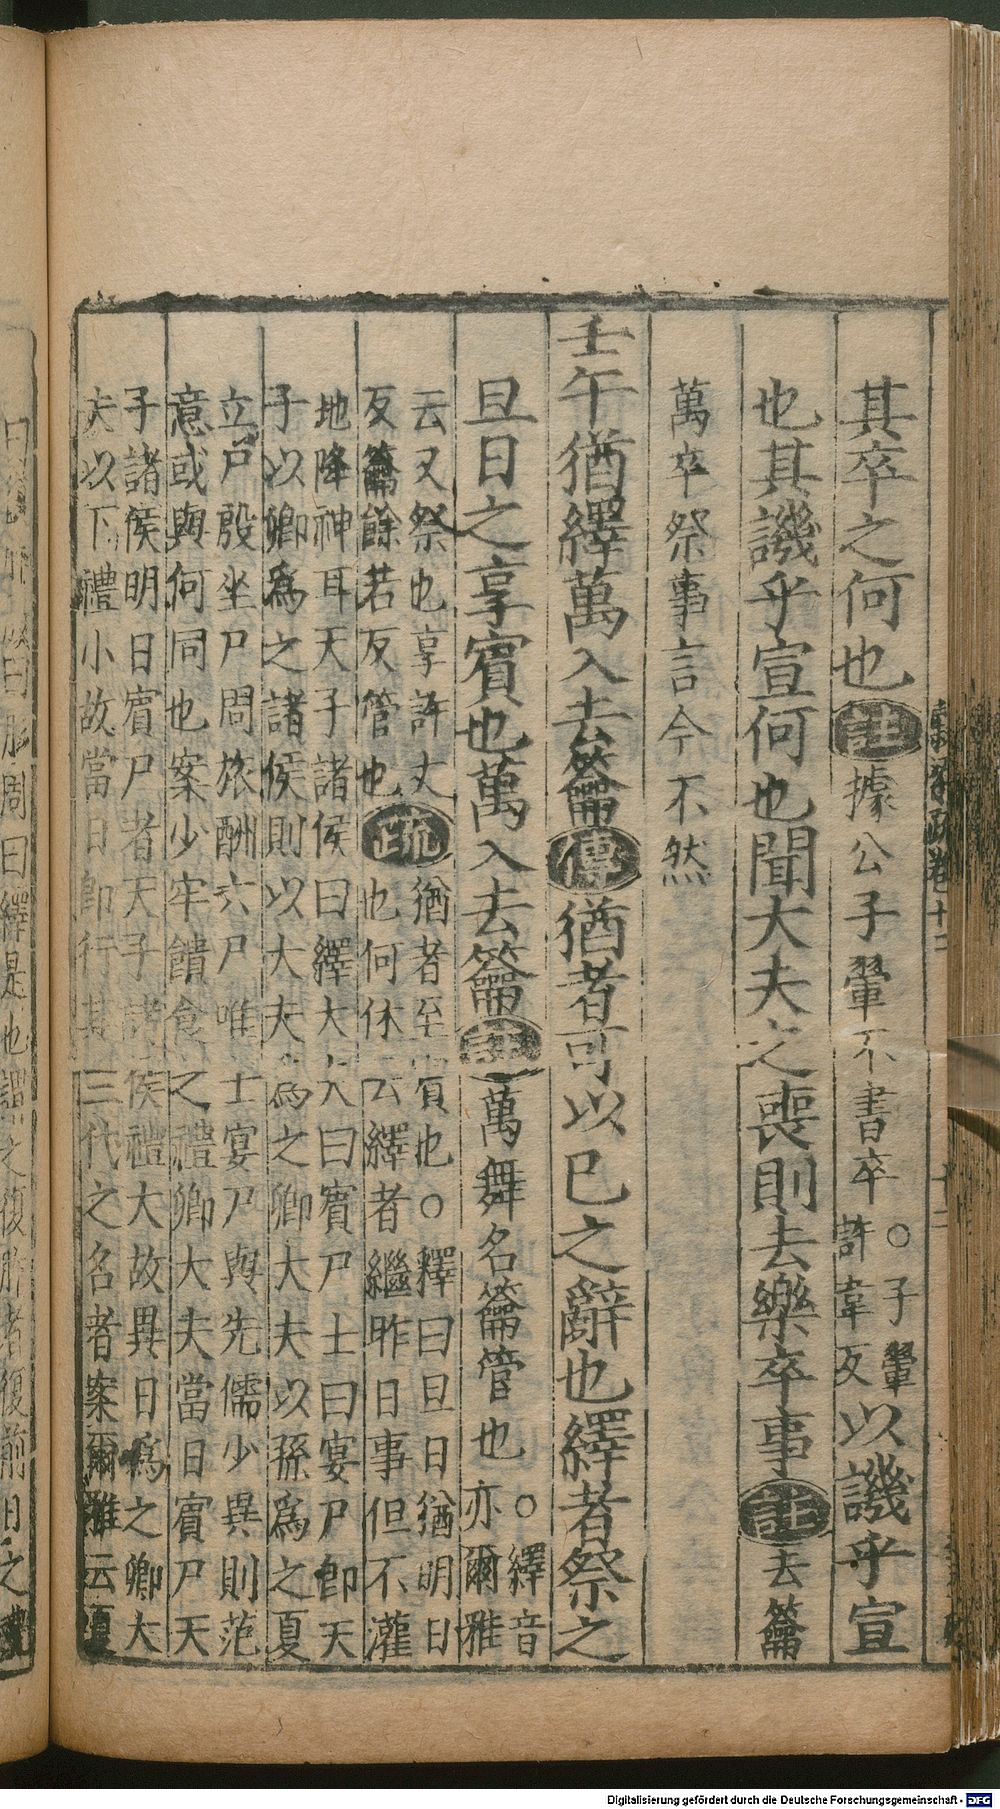 其卒之何也註據公子翬不書卒○子翬許韋反以譏乎宣
也其譏乎宣何也聞大夫之喪則去樂卒事註去籥
萬卒祭事言今不然
壬午猶繹萬入去籥傳猶者可以已之辭也繹者祭之
旦日之享賓也萬入去籥註萬舞名籥管也○繹音亦爾雅
云又祭也享許丈
反籥餘若反管也疏
猶者至賓也○釋曰旦日猶明日
也何休云繹者繼昨日事但不灌
地降神耳天子諸侯曰繹大夫曰賓尸士曰宴尸即天
子以卿為之諸侯則以大夫為之卿大夫以孫為之夏
立尸殷坐尸周旅酬六尸唯士宴尸與先儒少異則范
意或與何同也案少牢饋食之禮卿大夫當日賓尸天
子諸侯明日賓尸者天子諸侯禮大故異日為之卿大
夫以下禮小故當日即行其三代之名者案爾雅云夏
曰復胙商曰肜周曰繹是也謂之復胙者復前日之禮
Digitalisierung gefördert durch die Deutsche Forschungsgemeinschaft - DFG